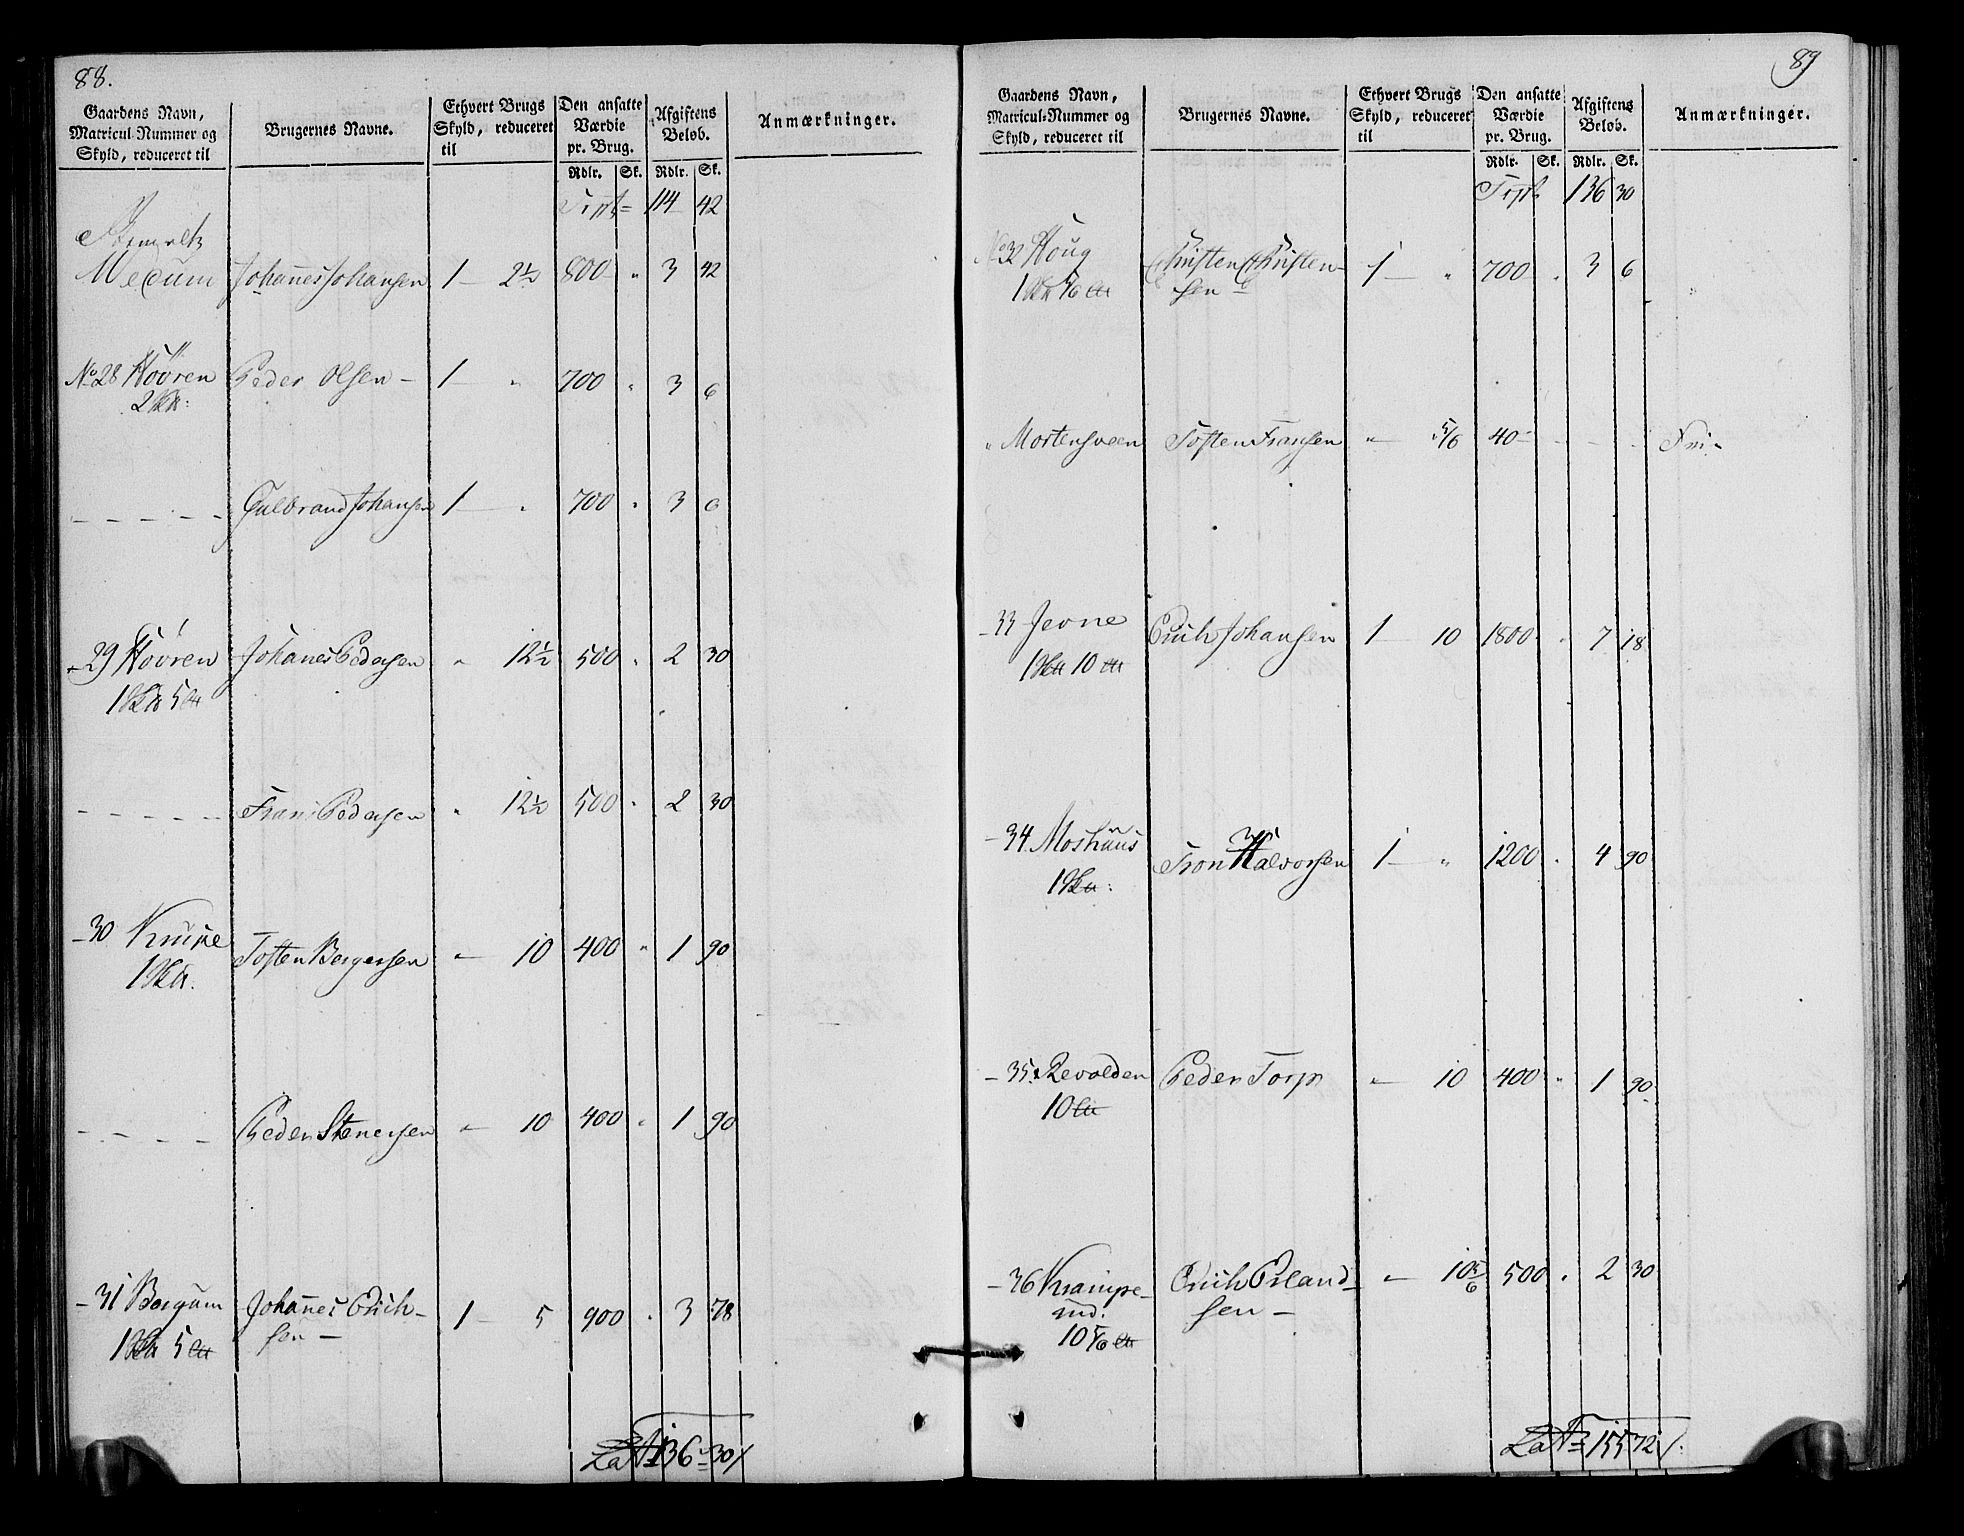 88.
Gaardens Navn, Matricul-Nummer og Skyld, reduceret til | Brugernes Navne. | Ethvert Brugs Skyld, reduceret til | Den ansatte Værdie pr. Brug. | Afgiftens Beløb. | Anmærkninger.
Rdlr. | Sk. | Rdlr. | Sk.
114 42
Medum Johannes Johansen 1 — 2½ 800 " 3 42
No 28 Hovren Peder Olsen — 1 — " 700 " 3 6
2
— — — — — Gulbrand Johansen 1 — " 700 " 3 6
— 29 Hovren Johanes Pedersen " 12½ 500 " 2 30
1 5
— — — — — Frans Pedersen " 12½ 500 " 2 30
— 30 Toften Bergersen " 10 400 " 1 90
1
— — — — Peder Stenersen " 10 400 " 1 90
— 31 Bergum Johannes Erich- 1 — 5 900 " 3 78
1 5 sen —
Lat 136 30
89
Gaardens Navn, Matricul-Nummer og Skyld, reduceret til | Brugernes Navne. | Ethvert Brugs Skyld, reduceret til | Den ansatte Værdie pr. Brug. | Afgiftens Beløb. | Anmærkninger.
Rdlr. | Sk. | Rdlr. | Sk.
136 30
No 32 Houg Christen Christen- 1 — " 700 " 3 6
1 5/6 sen —
" Mortensveen Toften Fransen " 5/6 40 — — — Fri
— 33 Jevne Erich Johansen 1 — 10 1800 " 7 18
1 10
— 34 Moshuus Tron Halvorsen 1 — " 1200 " 4 90
1
— 35 Revolden Peder Torp " 10 400 " 1 90
10
— 36 Krampe- Erich Erland- " 10 5/6 500 " 2 30
rud. sen —
10 5/6
Lat 155 72